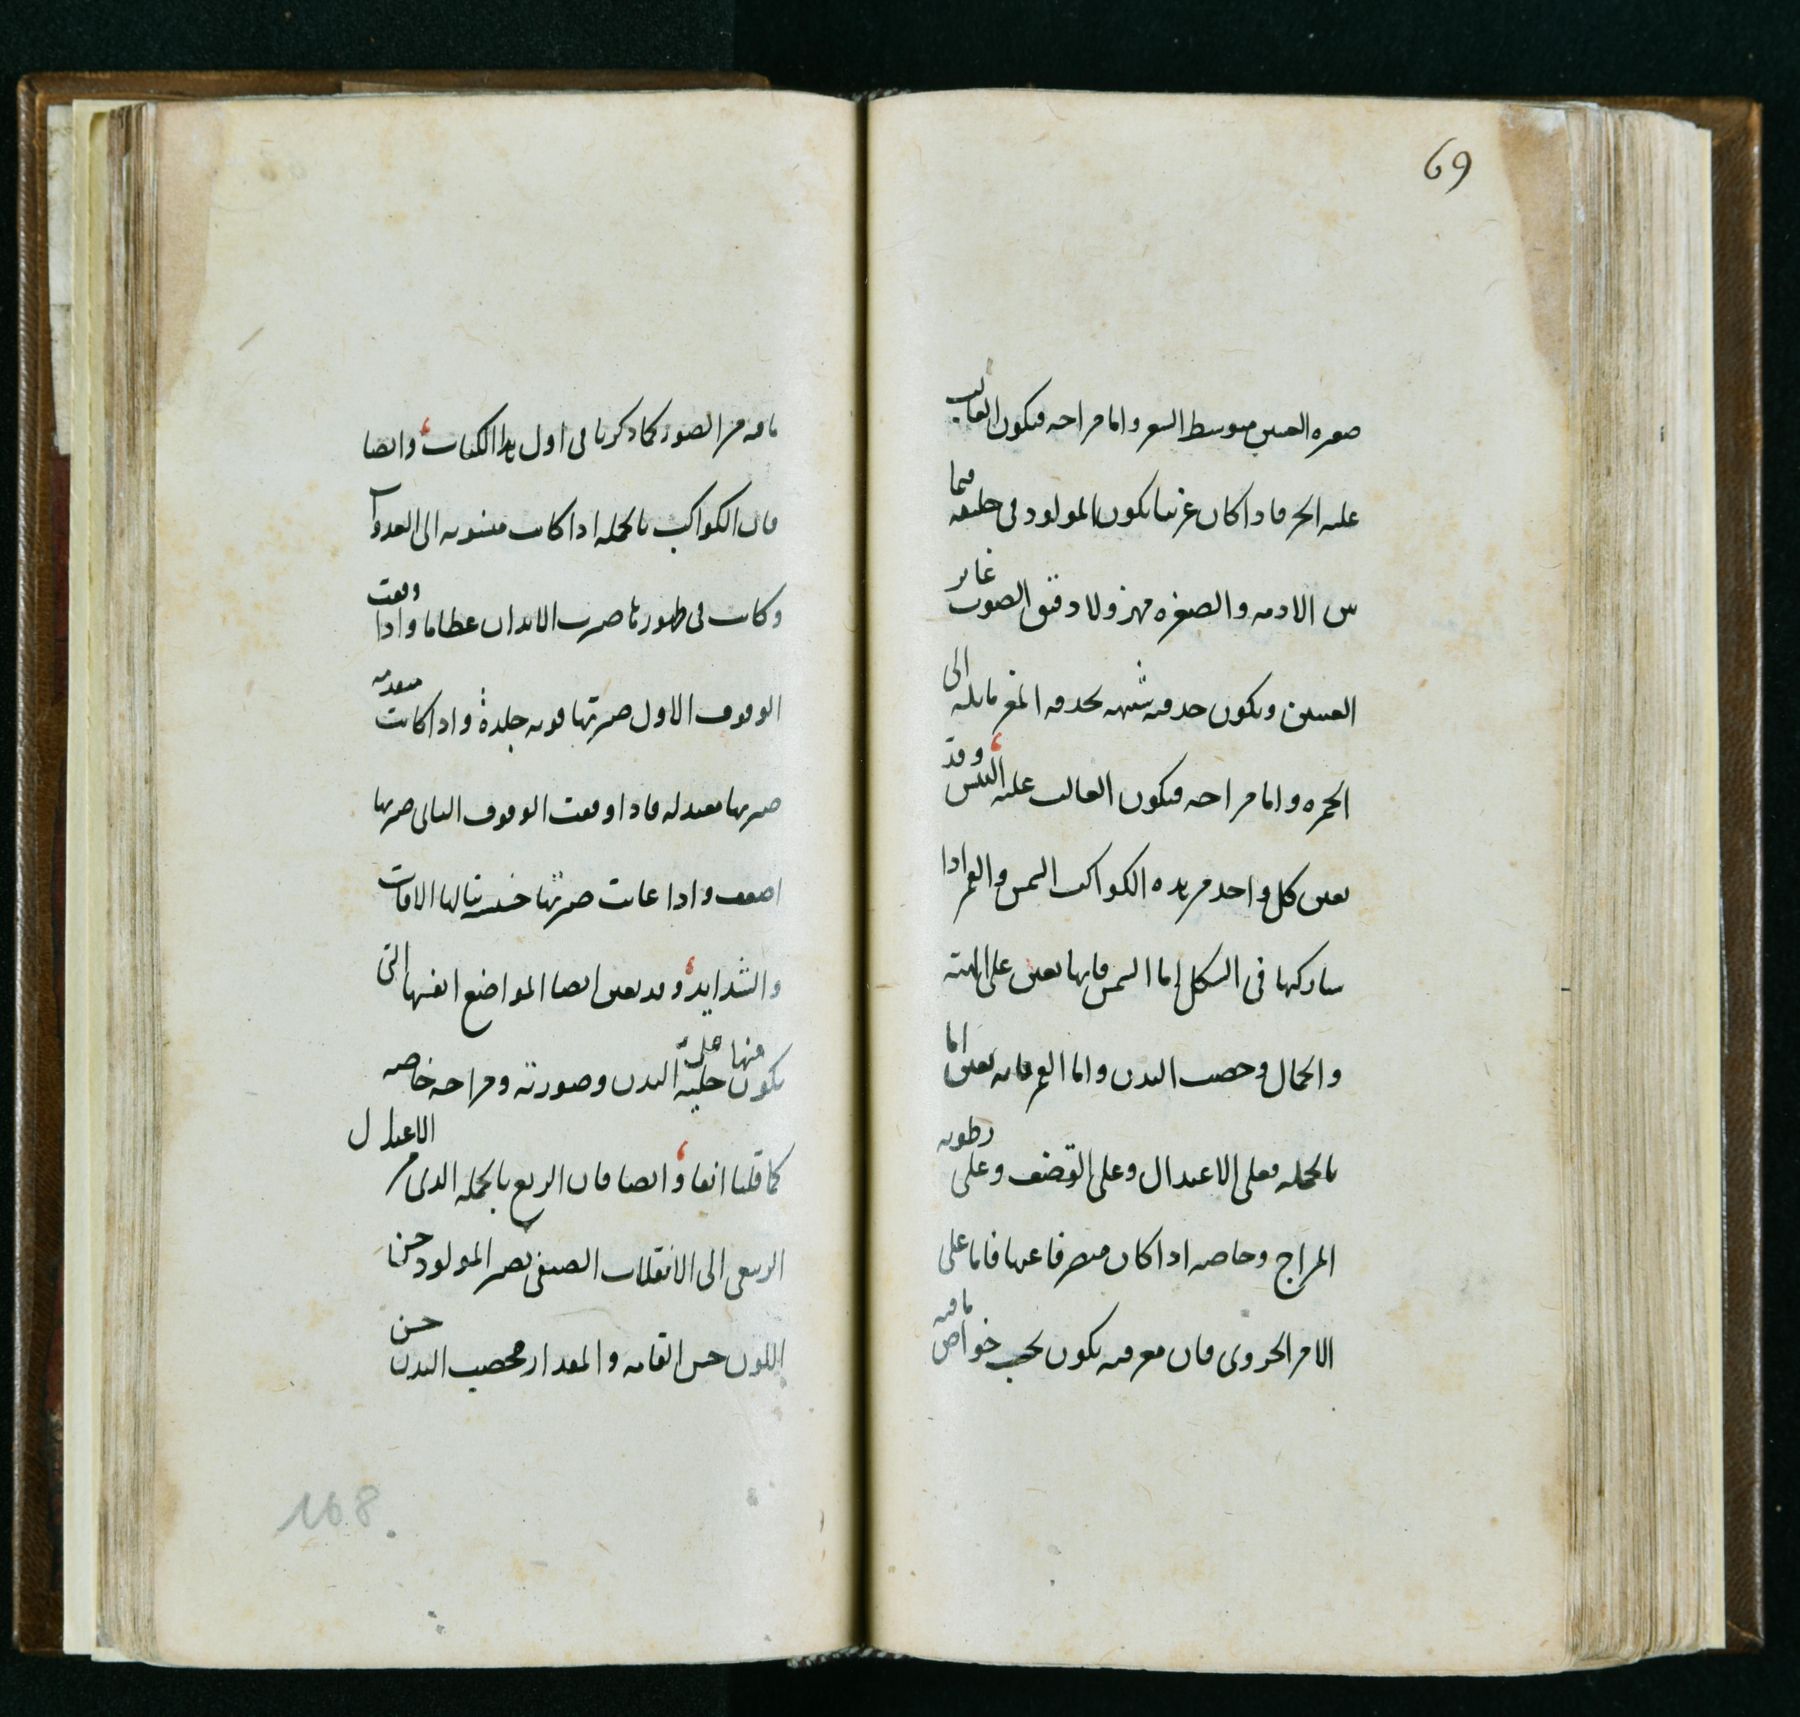 69
صغيره العينين متوسط الشعر واما مزاجه فيكون الغالب
عليه الحر فاذا كان غربيا يكون المولود في خلقته فيما
بين الادمه والصفره مهزولا دقيق الصوت غاير
العينين ويكون حدقته شبيهه بحدقه المعز مايله الى
الحمره واما مزاجه فيكون الغالب عليه اليبس وقد
يعين كل واحد من هذه الكواكب الشمس والقمر اذا
شاركها في الشكل اما الشمس فانها تعين على الهيئه
والجمال وخصب البدن واما القمر فانه يعين اما
بالجمله فعلى الاعتدال وعلى القضف وعلى رطوبه
المزاج وخاصه اذا كان منصرفا عنها فاما على
الامر الجزوى فان معرفته يكون بحسب خواص ما فيه
ما فيه من الصور كما ذكرنا في اول هذا الكتاب وايضا
فان الكواكب بالجمله اذا كانت منسوبه الى الغدوات
وكانت في ظهورها صيرت الابدان عظاما واذا وقفت
الوقوف الاول صيرتها قويه جلدة واذا كانت متقدمه
صيرتها معتدله فاذا وقفت الوقوف الثانى صيرتها
اضعف واذا غابت صيرتها خسيسه تنالها الافات
والشدايد وقد يعين ايضا المواضع انفسها التى
يكون منها حليه على البدن وصورته ومزاجه خاصه
كما قلنا انفا وايضا فان الربع بالجمله الذى من الاعتدال
الربيعى الى الانقلاب الصيفى يصير المولود حسن
اللون حسن القامه والمقدار مخصب البدن حسن
168.